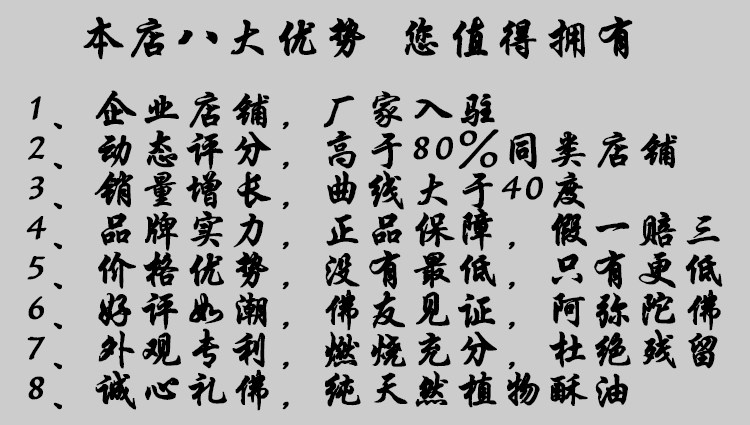 本店八大优势 您值得拥有
1、企业店铺，厂家入驻
2、动态评分，高于80%同类店铺
3、销量增长，曲线大于40度
4、品牌实力，正品保障，假一赔三
5、价格优势，没有最低，只有更低
6、好评如潮，佛友见证，阿弥陀佛
7、外观专利，燃烧充分，杜绝残留
8、诚心礼佛，纯天然植物酥油